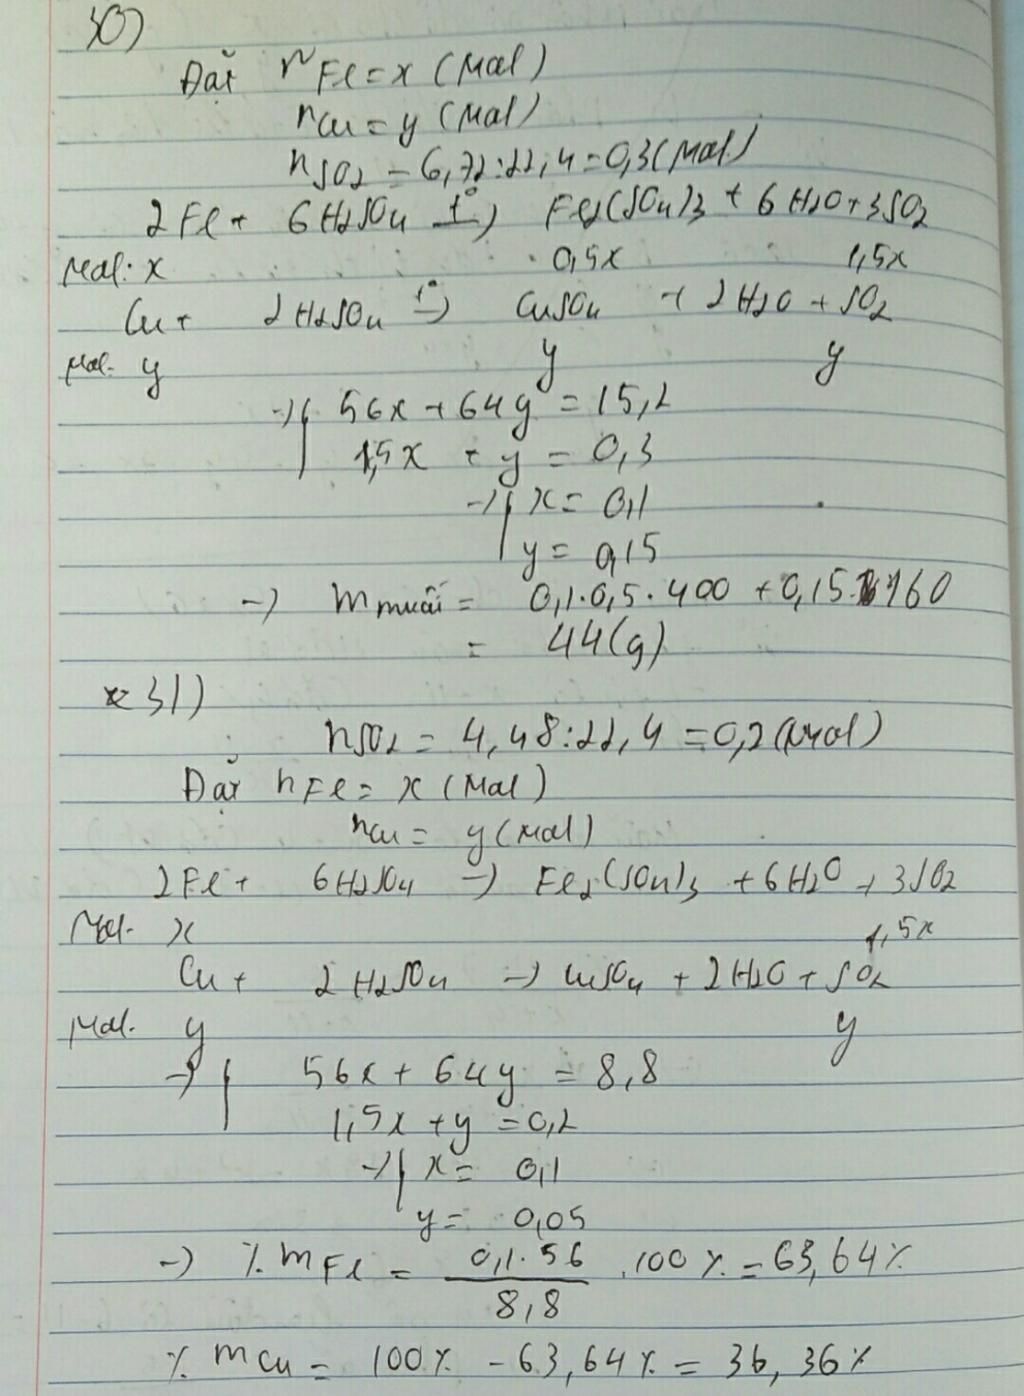 30)
Đặt nFe = x (mol)
nCu = y (mol)
nSO2 = 6,72:22,4 = 0,3 (mol)
2Fe + 6H2SO4 t°→ Fe2(SO4)3 + 6H2O + 3SO2
mol: x 0,5x 1,5x
Cu + 2H2SO4 t°→ CuSO4 + 2H2O + SO2
mol: y y y
→ { 56x + 64y = 15,2
1,5x + y = 0,3
→ { x = 0,1
y = 0,15
→ m muối = 0,1.0,5.400 + 0,15.160
= 44(g)
31)
nSO2 = 4,48:22,4 = 0,2 (mol)
Đặt nFe = x (mol)
nCu = y (mol)
2Fe + 6H2SO4 → Fe2(SO4)3 + 6H2O + 3SO2
mol: x 1,5x
Cu + 2H2SO4 → CuSO4 + 2H2O + SO2
mol: y y
→ { 56x + 64y = 8,8
1,5x + y = 0,2
→ { x = 0,1
y = 0,05
→ % mFe = 0,1.56 / 8,8 .100% = 63,64%
% mCu = 100% - 63,64% = 36,36%